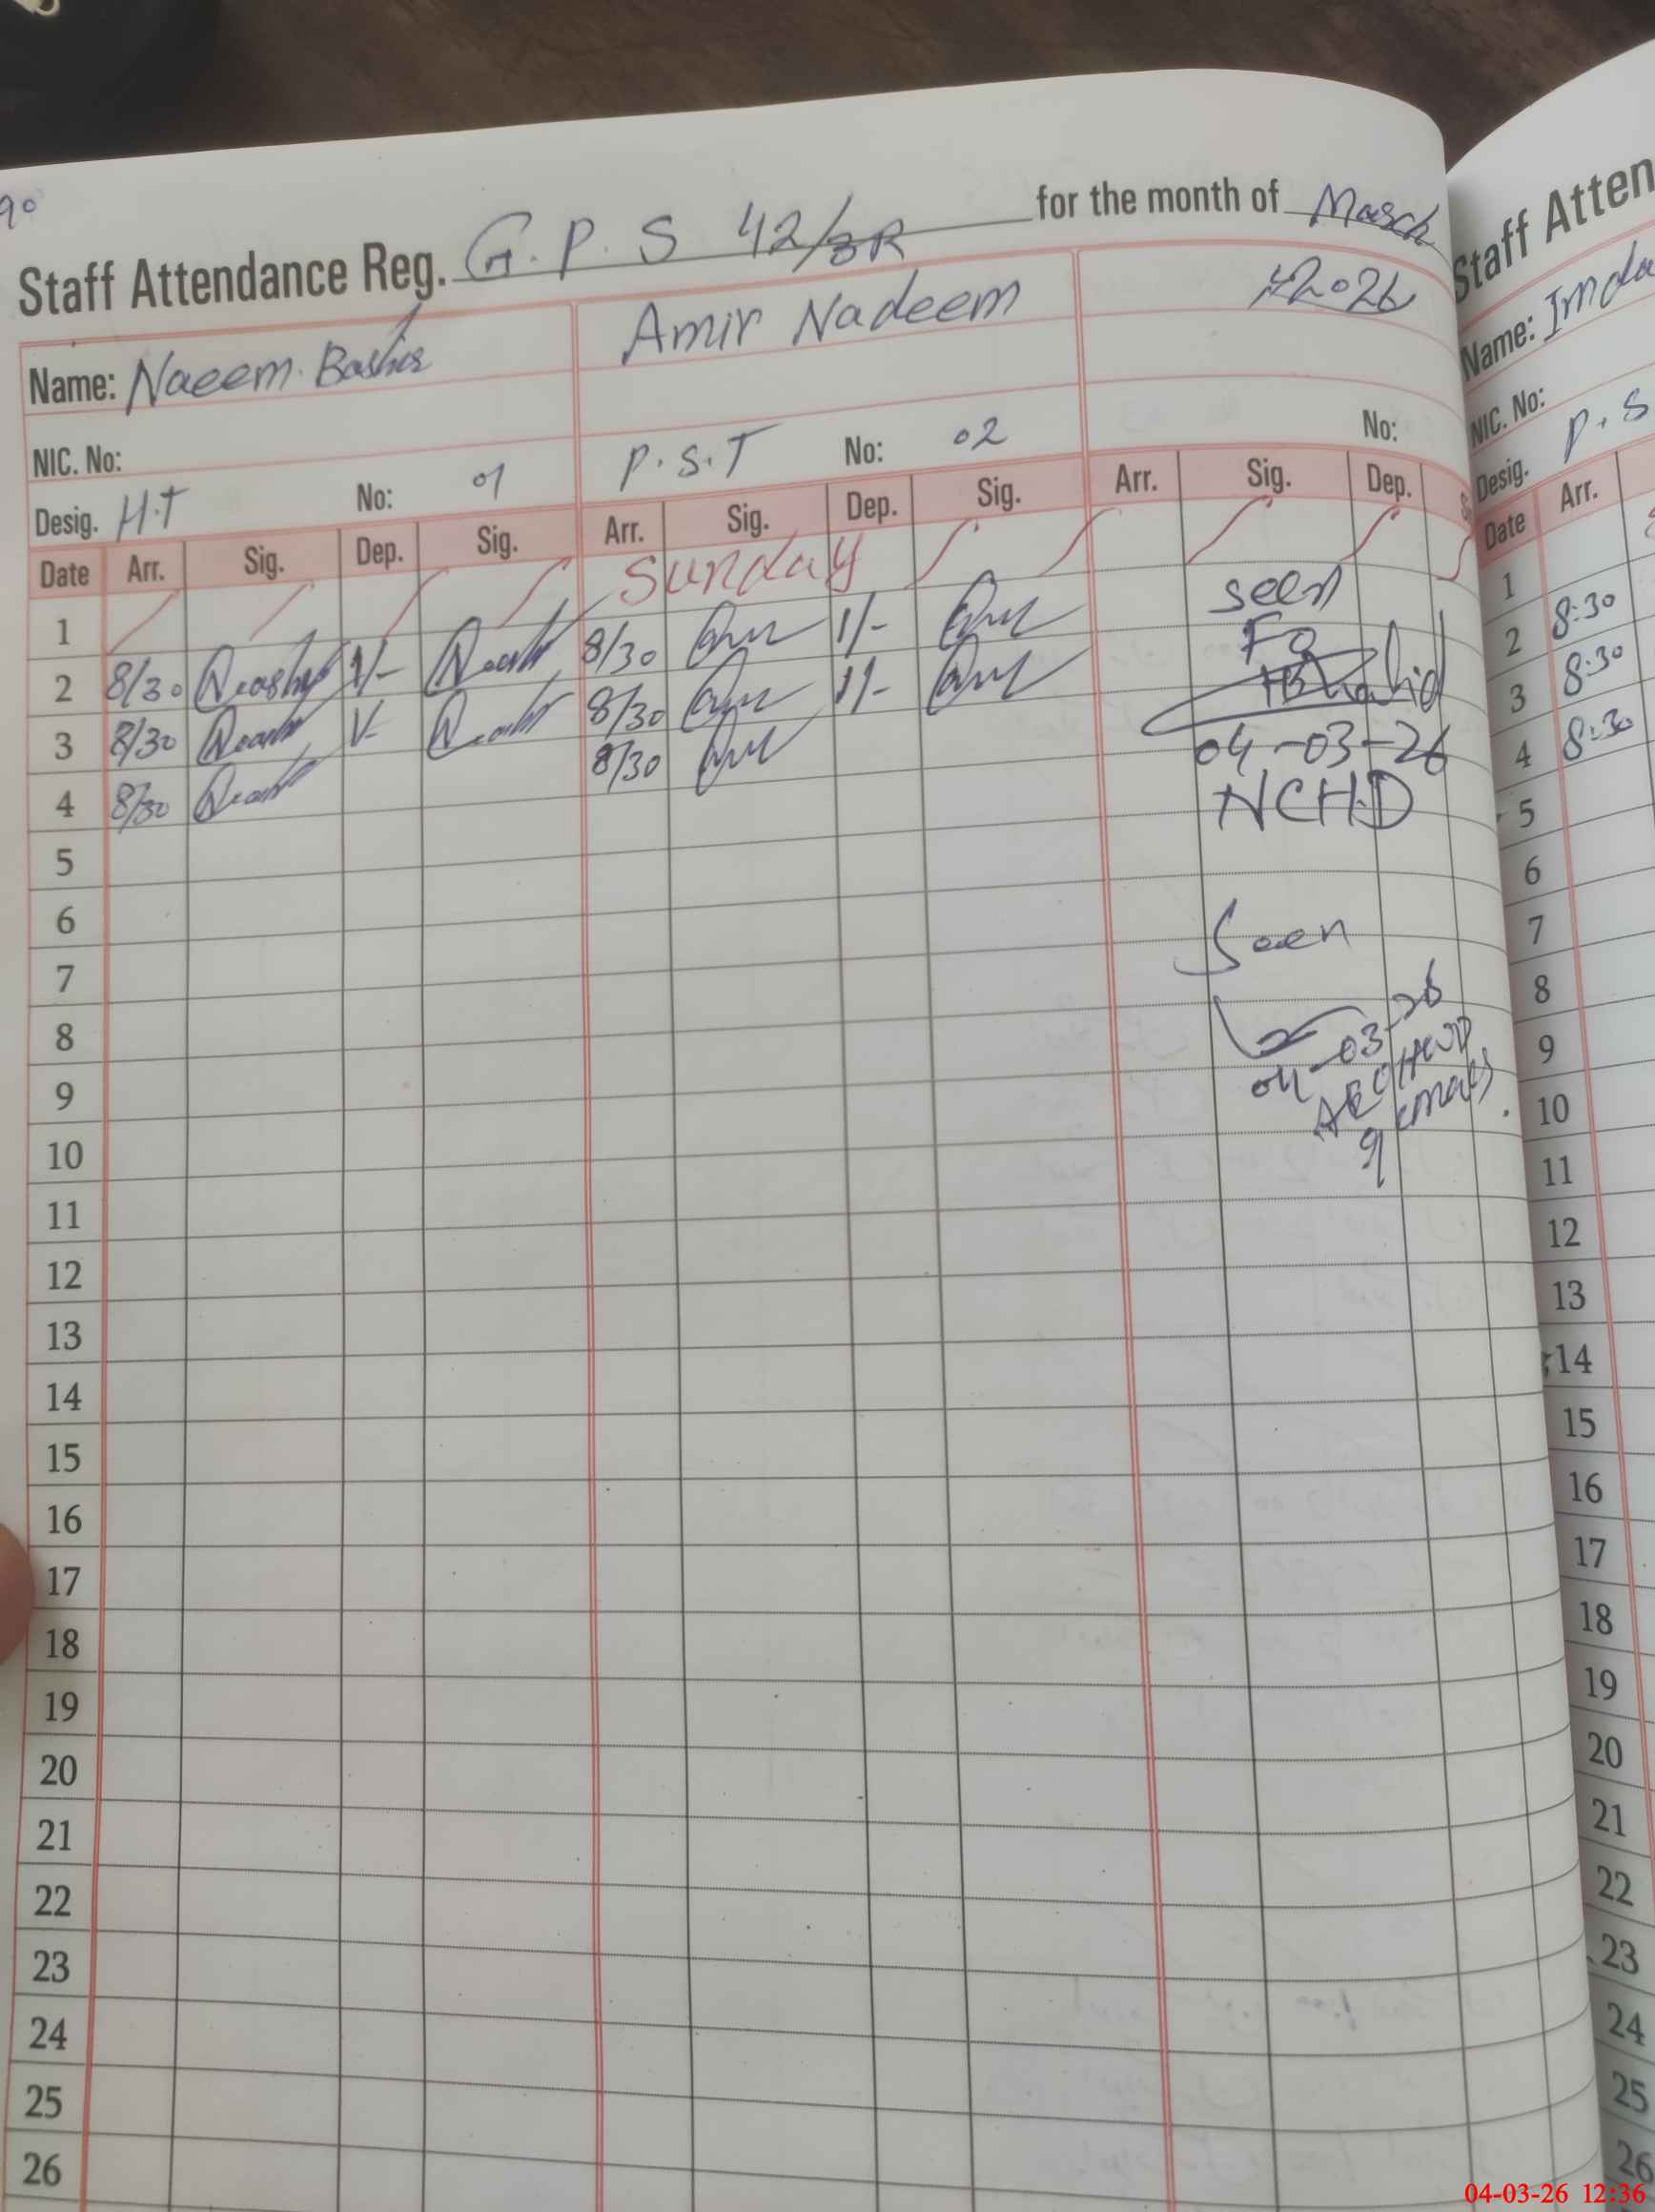 90
Staff Attendance Reg. G.P.S 42/3R for the month of March
2026
Name: Naeem Bashir Amir Nadeem
NIC. No:
Desig. H.T No: 01 P.S.T No: 02 No:
Date Arr. Sig. Dep. Sig. Arr. Sig. Dep. Sig. Arr. Sig. Dep.
1 Sunday
2 8/30 1/- 8/30 1/-
3 8/30 1/- 8/30 1/-
4 8/30 8/30
5
6
7
8
9
10
11
12
13
14
15
16
17
18
19
20
21
22
23
24
25
26
seen
04-03-26
NCHD
Seen
04-03-26
Staff Atten
Name: Imda
NIC. No:
Desig. P.S
Date Arr.
1
2 8:30
3 8:30
4 8:30
5
6
7
8
9
10
11
12
13
14
15
16
17
18
19
20
21
22
23
24
25
26
04-03-26 12:36